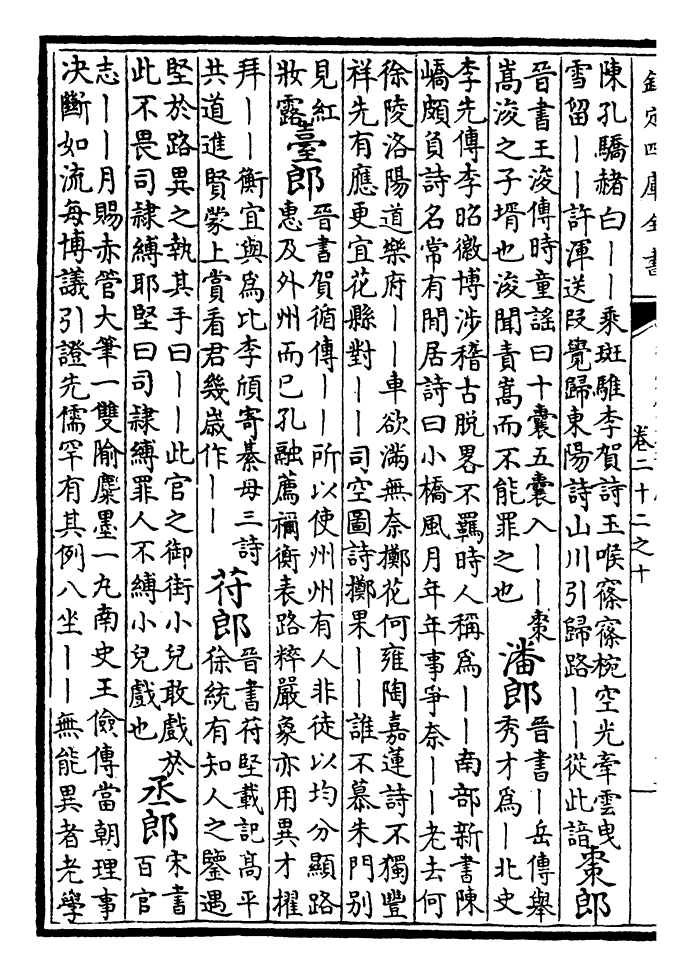 欽定四庫全書
卷二十二之十
陳孔驕赭白丨丨乘斑騅李賀詩玉喉窱窱椀空光牽雲曳
雪留丨丨許渾送段覺歸東陽詩山川引歸路丨丨從此諳
棗郎
晉書王浚傳時童謡曰十囊五囊入丨丨棗
嵩浚之子壻也浚聞責嵩而不能罪之也
潘郎
晉書丨岳傳舉
秀才爲丨北史
李先傳李昭徽博涉稽古脱畧不羈時人稱爲丨丨南部新書陳
嶠頗負詩名常有閒居詩曰小橋風月年年事爭奈丨丨老去何
徐陵洛陽道樂府丨丨車欲滿無奈擲花何雍陶嘉蓮詩不獨豐
祥先有應更宜花縣對丨丨司空圖詩擲果丨丨誰不慕朱門别
見紅
妝露
臺郎
晉書賀循傳丨丨所以使州州有人非徒以均分顯路
惠及外州而已孔融薦禰衡表路粹嚴象亦用異才擢
拜丨丨衡宜與爲比李頎寄綦毋三詩
共道進賢蒙上賞看君幾歲作丨丨
苻郎
晉書苻堅載記高平
徐統有知人之鑒遇
堅於路異之執其手曰丨丨此官之御街小兒敢戲於
此不畏司隸縛耶堅曰司隸縛罪人不縛小兒戲也
丞郎
宋書
百官
志丨丨月賜赤管大筆一雙隃麋墨一丸南史王儉傳當朝理事
决斷如流每博議引證先儒罕有其例八坐丨丨無能異者老學